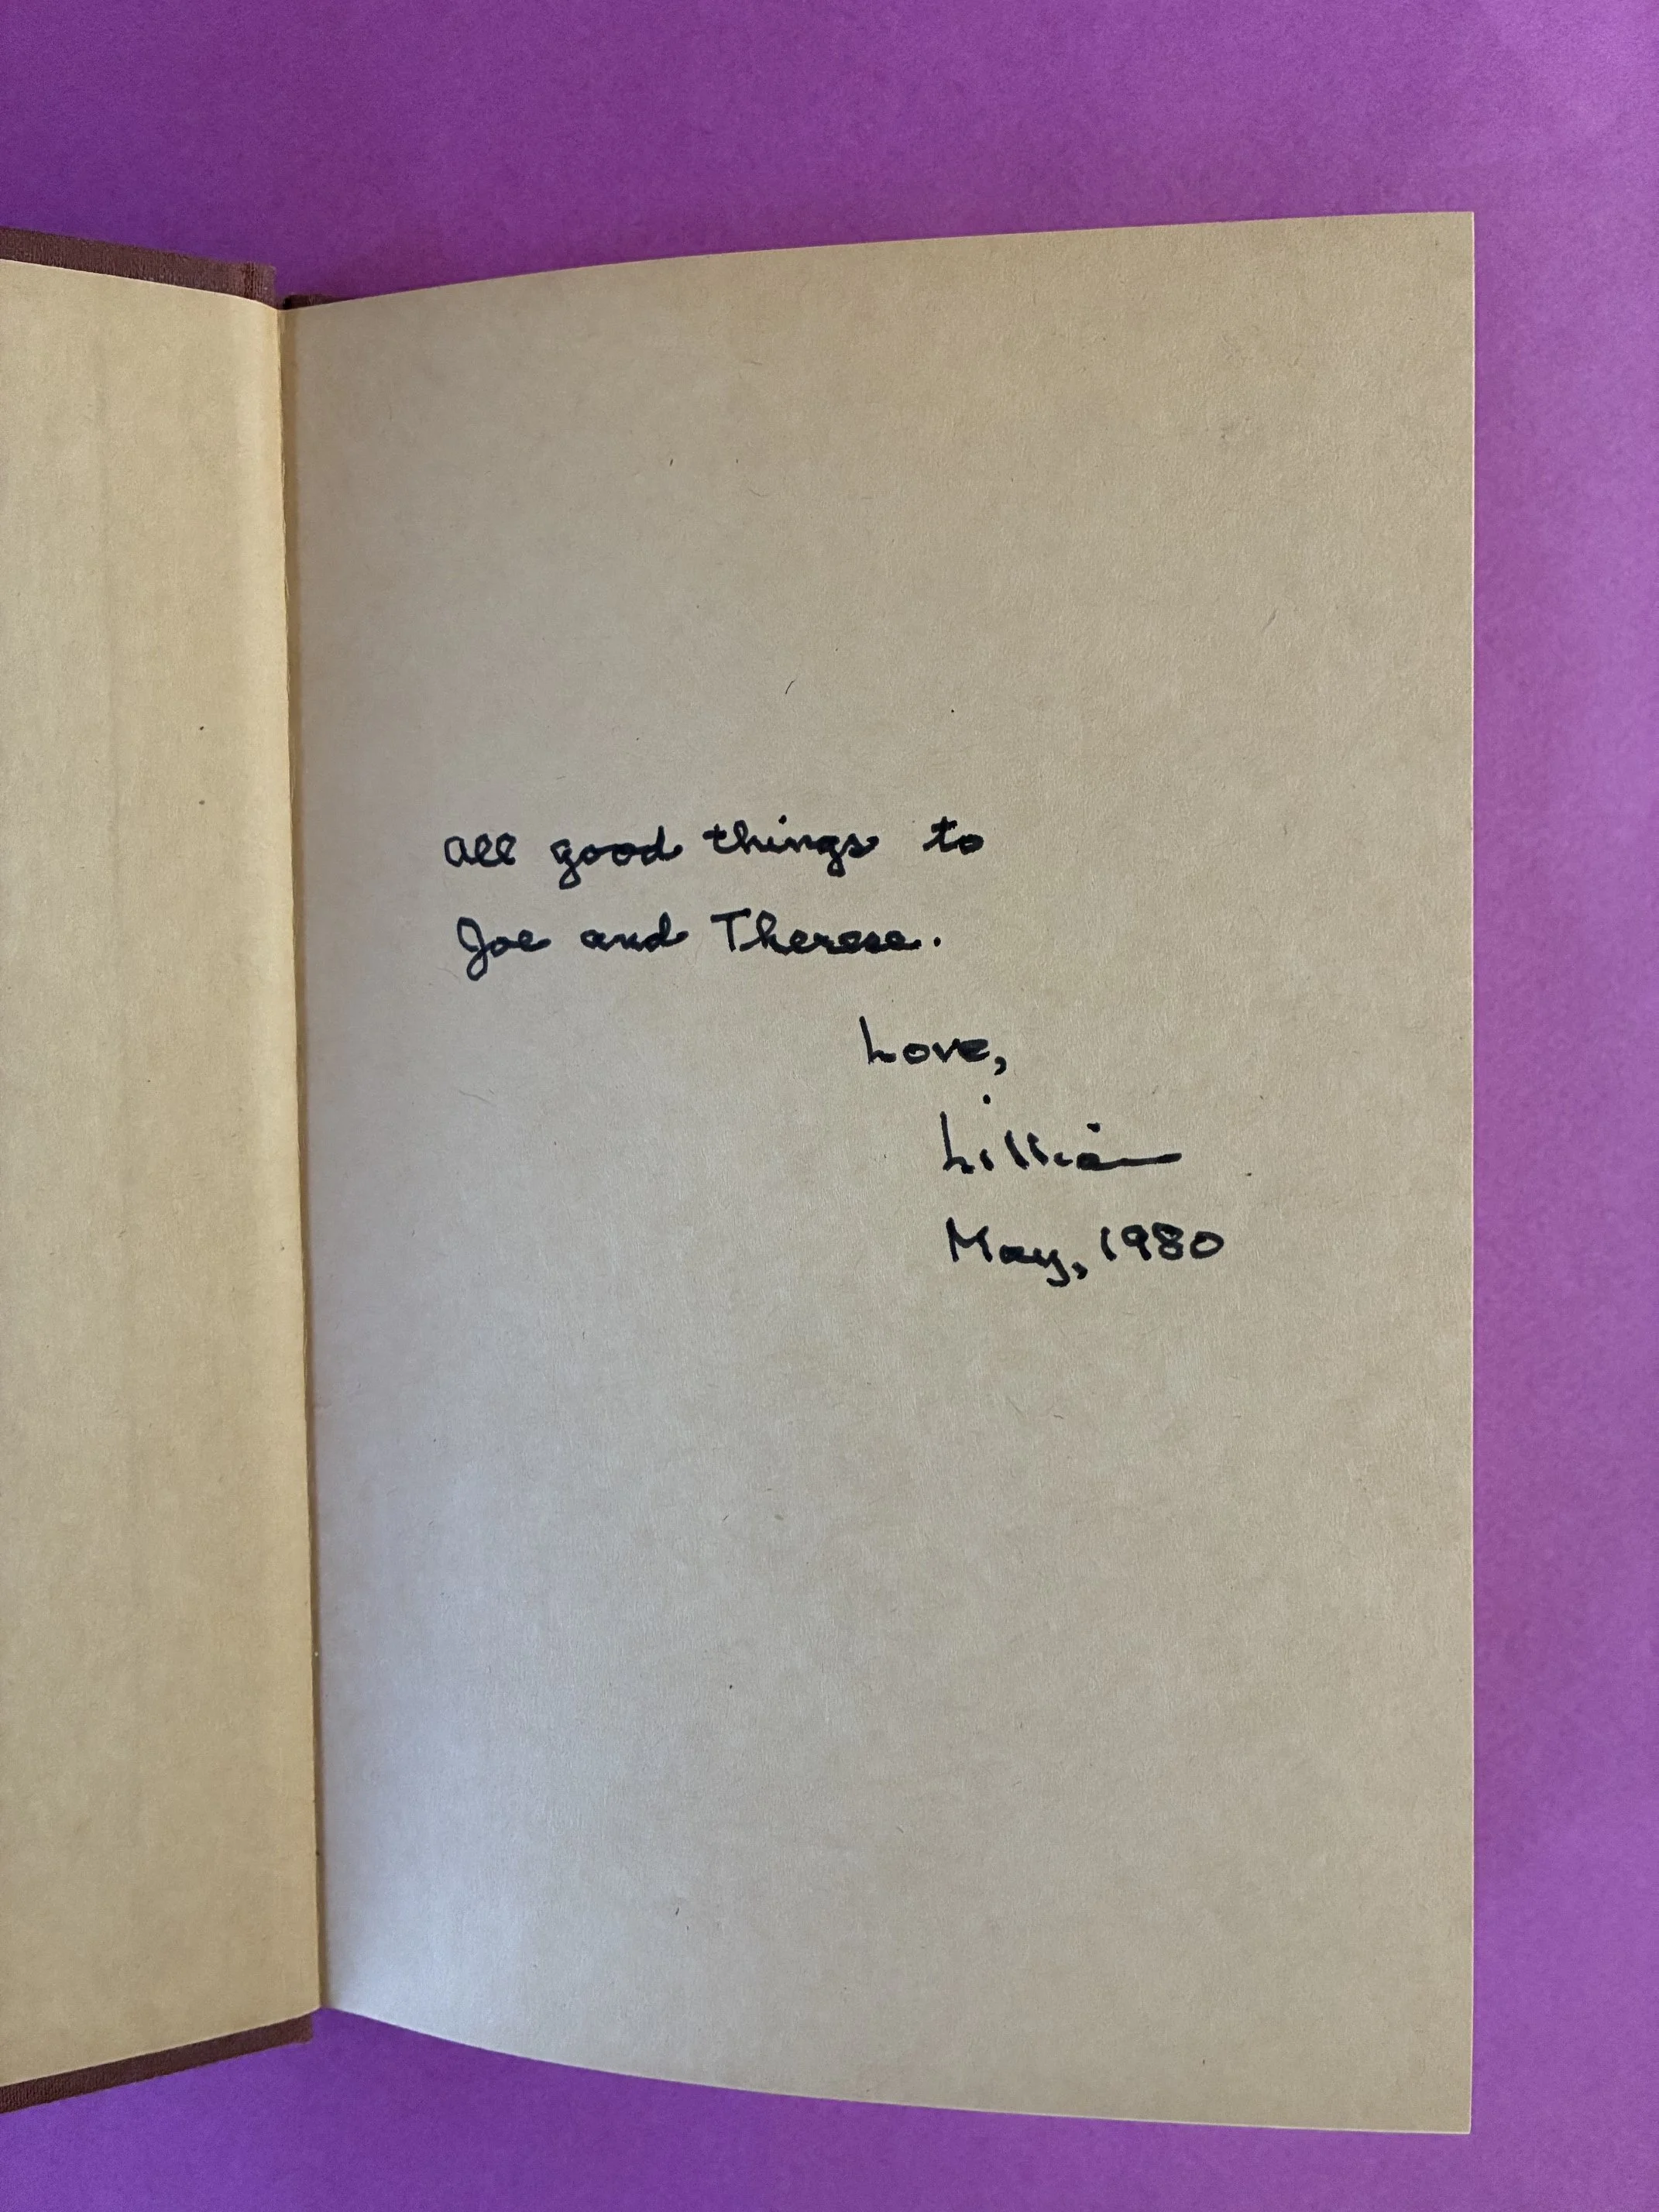 All good things to
Joe and Therese.
Love,
Lillian
May, 1980